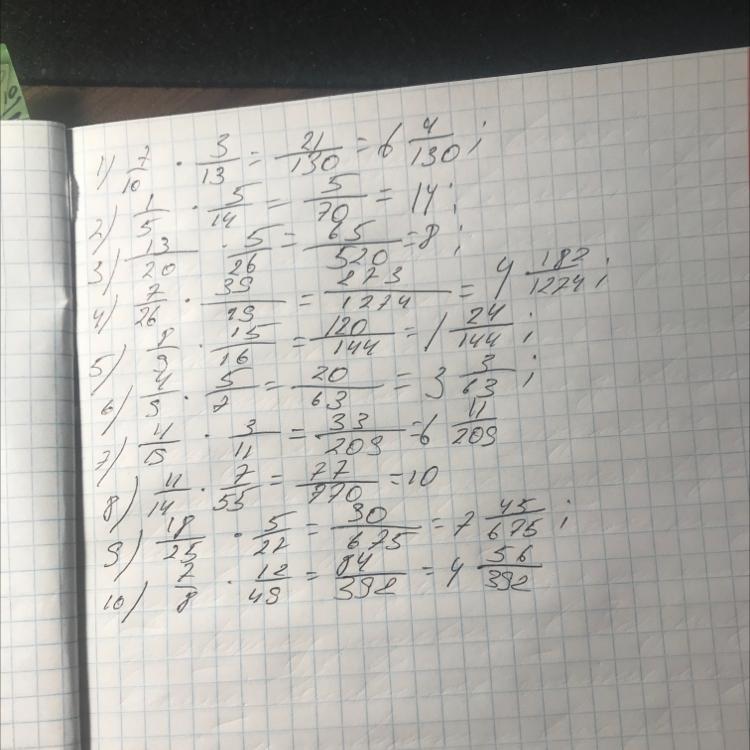 1) 7/10 · 3/13 = 21/130 = 6 4/130;
2) 1/5 · 5/14 = 5/70 = 14;
3) 13/20 · 5/26 = 65/520 = 8;
4) 7/26 · 39/49 = 273/1274 = 4 182/1274;
5) 8/9 · 15/16 = 120/144 = 1 24/144;
6) 4/9 · 5/7 = 20/63 = 3 3/63;
7) 11/ · 3/11 = 33/209 = 6 11/209
8) 11/14 · 7/55 = 77/770 = 10
9) 18/25 · 5/27 = 90/675 = 7 45/675;
10) 7/8 · 12/49 = 84/392 = 4 56/392